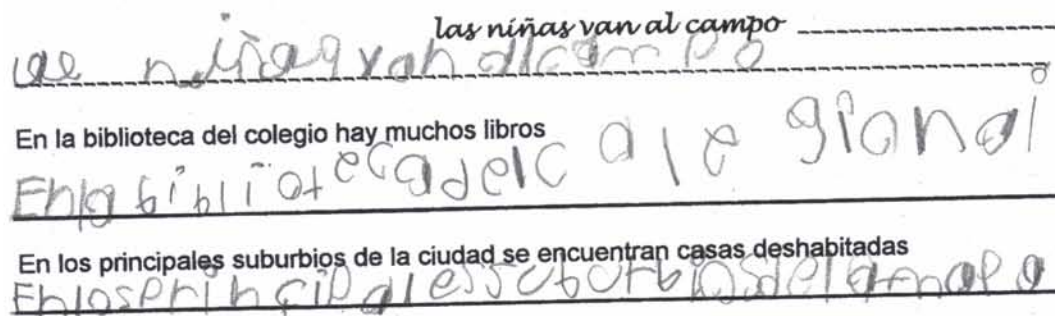 las niñas van al campo
niñas van al campo
En la biblioteca del colegio hay muchos libros
En la biblioteca delc
En los principales suburbios de la ciudad se encuentran casas deshabitadas
En los principales suburbios de la